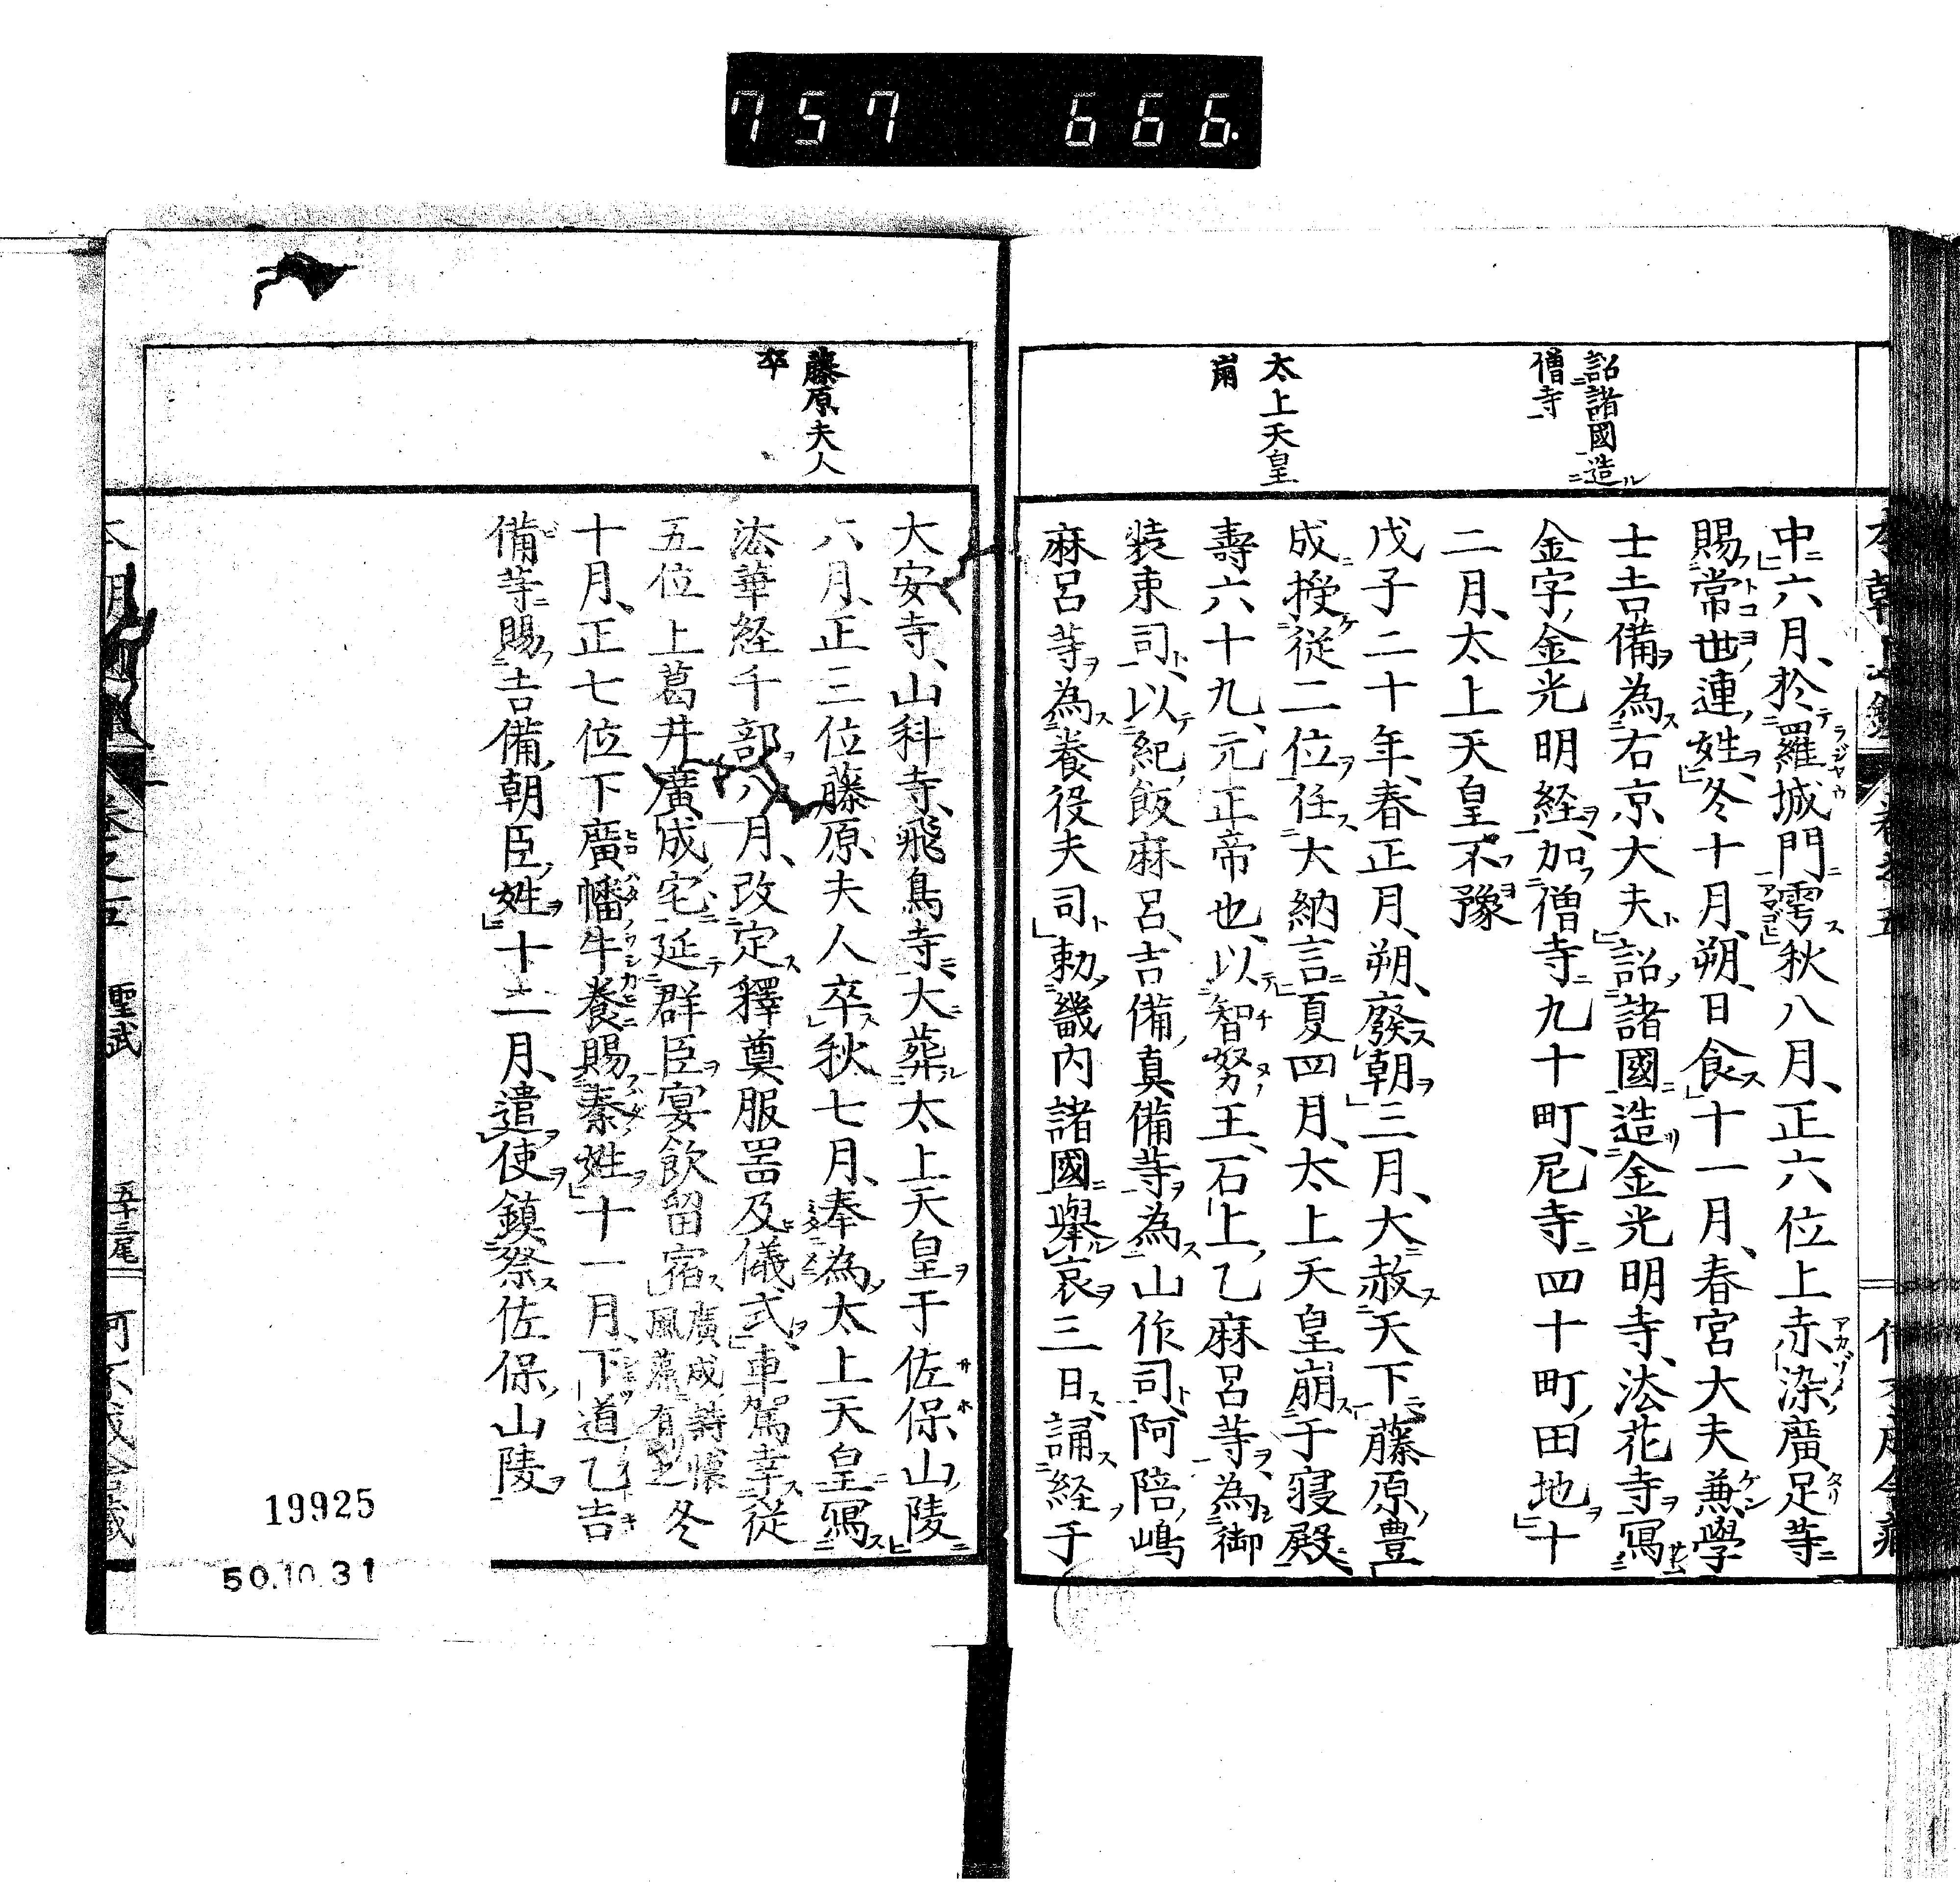 757 666.
詔諸國造
僧寺
太上天皇
崩
中六月、於羅城門雩秋八月、正六位上赤染廣足等
賜常世連姓、冬十月朔、日食十一月、春宮大夫兼學
士吉備為右京大夫詔諸國造金光明寺、法花寺寫
金字金光明経、加僧寺九十町、尼寺四十町、田地十
二月、太上天皇不豫
戊子二十年、春正月、朔、廢朝三月、大赦天下藤原豊
成授従二位任大納言夏四月、太上天皇崩于寝殿
壽六十九、元正帝也、以智努王、石上乙麻呂等為御
装束司、以紀飯麻呂、吉備真備等為山作司、阿陪嶋
麻呂等為養役夫司勅畿内諸國擧哀三日、誦経于
藤原夫人
卒
大安寺、山科寺、飛鳥寺、大葬太上天皇于佐保山陵
六月、正三位藤原夫人卒秋七月、奉為太上天皇寫
法華経千部八月、改定釋奠服噐及儀式車駕幸従
五位上葛井廣成宅延群臣宴飲留宿廣成詩懷風藻有之冬
十月、正七位下廣幡牛養賜秦姓十一月、下道乙吉
備等賜吉備朝臣姓十二月、遣使鎮祭佐保山陵
卷之五 聖武 五十三尾
19925
50.10.31